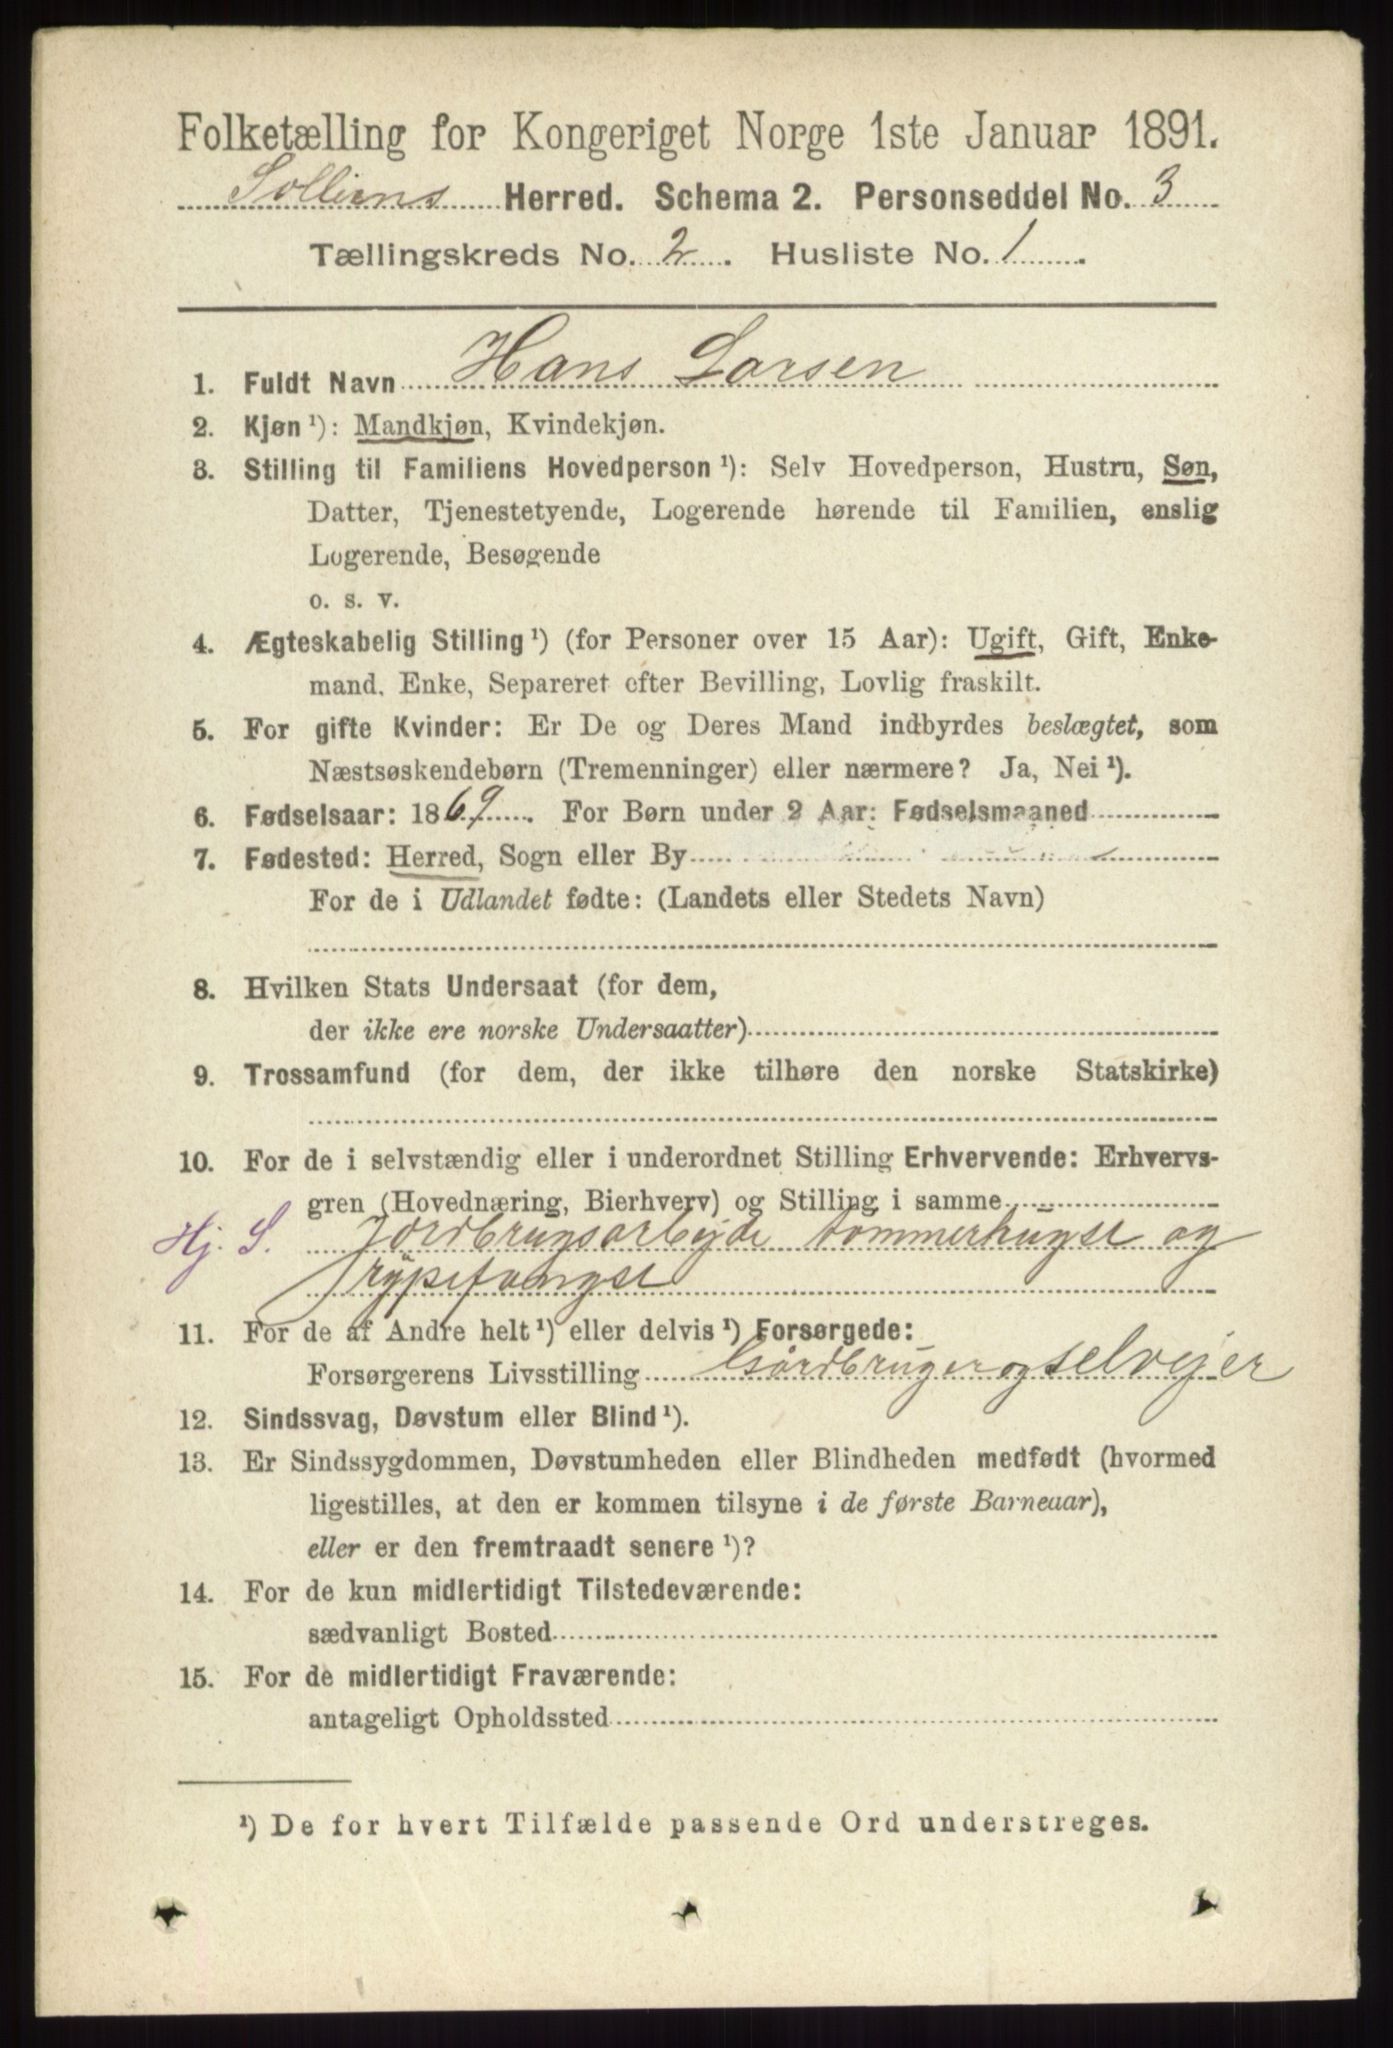 Folketælling for Kongeriget Norge 1ste Januar 1891.
Solliens Herred. Schema 2. Personseddel No. 3
Tællingskreds No. 2. Husliste No. 1.
1. Fuldt Navn Hans Larsen
2. Kjøn ¹): Mandkjøn, Kvindekjøn.
3. Stilling til Familiens Hovedperson ¹): Selv Hovedperson, Hustru, Søn,
Datter, Tjenestetyende, Logerende hørende til Familien, enslig
Logerende, Besøgende
o. s. v.
4. Ægteskabelig Stilling ¹) (for Personer over 15 Aar): Ugift, Gift, Enke-
mand, Enke, Separeret efter Bevilling, Lovlig fraskilt.
5. For gifte Kvinder: Er De og Deres Mand indbyrdes beslægtet, som
Næstsøskendebørn (Tremenninger) eller nærmere? Ja, Nei ¹).
6. Fødselsaar: 1869. For Børn under 2 Aar: Fødselsmaaned
7. Fødested: Herred, Sogn eller By
For de i Udlandet fødte: (Landets eller Stedets Navn)
8. Hvilken Stats Undersaat (for dem,
der ikke ere norske Undersaatter)
9. Trossamfund (for dem, der ikke tilhøre den norske Statskirke)
10. For de i selvstændig eller i underordnet Stilling Erhvervende: Erhvervs-
gren (Hovednæring, Bierhverv) og Stilling i samme
Hj. S. Jordbrugsarbejde tømmerhugst og
rypefangst
11. For de af Andre helt ¹) eller delvis ¹) Forsørgede:
Forsørgerens Livsstilling Gårdbruger og selvejer
12. Sindssvag, Døvstum eller Blind ¹).
13. Er Sindssygdommen, Døvstumheden eller Blindheden medfødt (hvormed
ligestilles, at den er kommen tilsyne i de første Barneaar),
eller er den fremtraadt senere ¹)?
14. For de kun midlertidigt Tilstedeværende:
sædvanligt Bosted
15. For de midlertidigt Fraværende:
antageligt Opholdssted
¹) De for hvert Tilfælde passende Ord understreges.